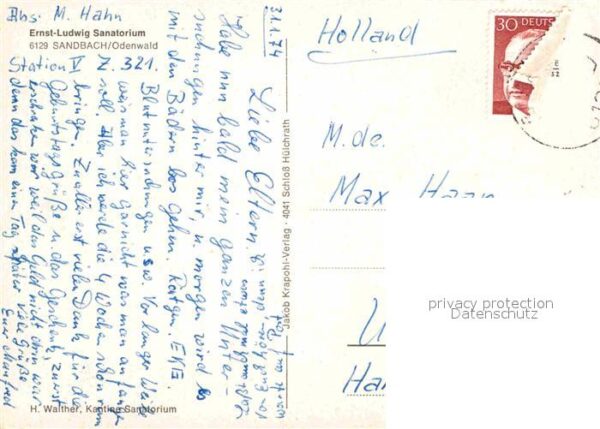 Abs: M. Hahn
Ernst-Ludwig Sanatorium
6129 SANDBACH/Odenwald
Station IV N. 321.
31.1.74
Liebe Eltern,
Habe nun bald mein ganzen Unter-
suchungen hinter mir, u. morgen wird es
mit den Bädern los gehn. Rötgen, EKG,
Blutuntersuchungen usw. Vor langer Weile
weis man hier garnicht was man anfangen
soll. Aber ich werde die 4 Wochen schon rum
bringen. Zu aller erst vielen Dank für die
Geburtstagsgrüße u. das Geschenk, zuerst
erschraken wir weil das Geld nicht drin war
denn das kam einen Tag später viele Grüße
Euer Manfred
von Euch zu hören, denn
warte auf Post
H. Walther, Kantine Sanatorium
Jakob Krapohl-Verlag · 4041 Schloß Hülchrath
Holland
30 DEUTS
M.de.
Max Haan
Ha
privacy protection
Datenschutz